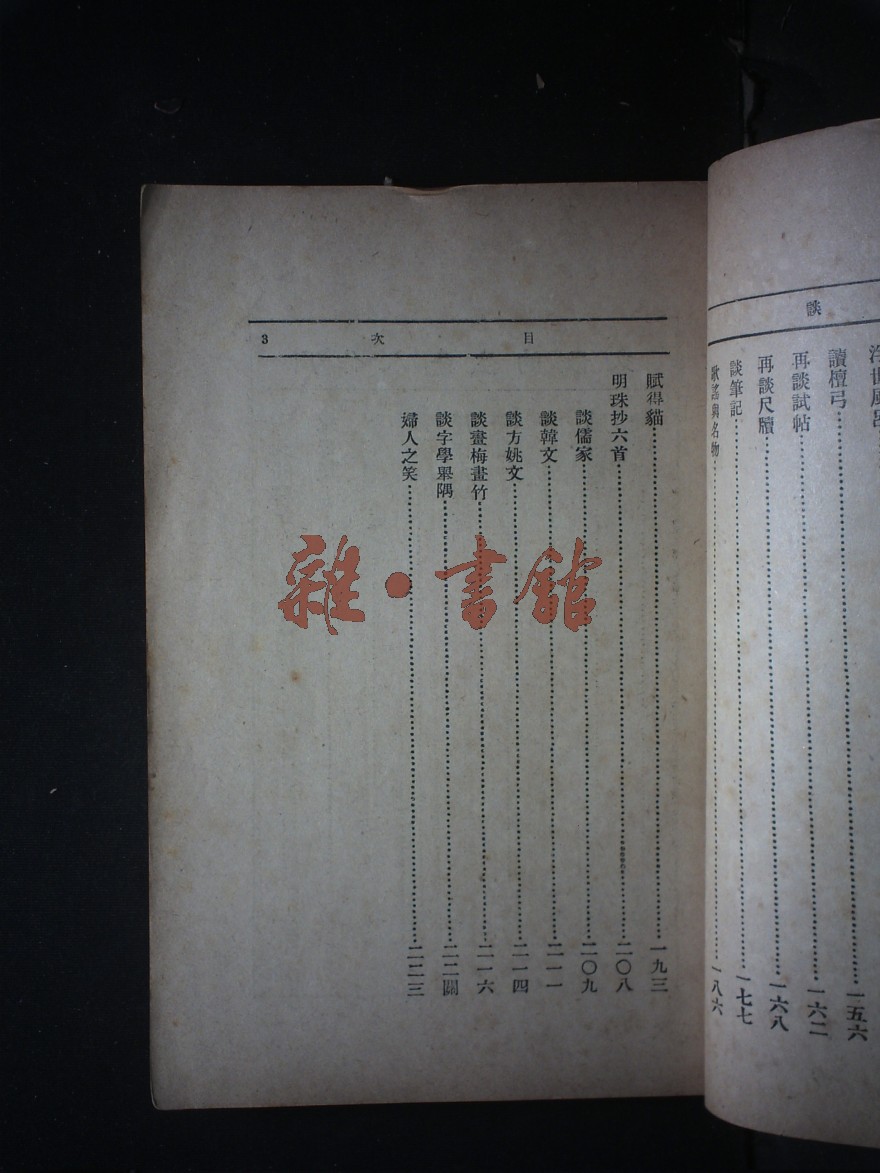 談
浮世風呂
讀檀弓 一五六
再談試帖 一六二
再談尺牘 一六八
談筆記 一七七
歌謠與名物 一八六
目次 3
賦得貓 一九三
明珠抄六首 二〇八
談儒家 二〇九
談韓文 二一一
談方姚文 二一四
談畫梅畫竹 二一六
談字學舉隅 二二關
婦人之笑 二二三
雜·書館